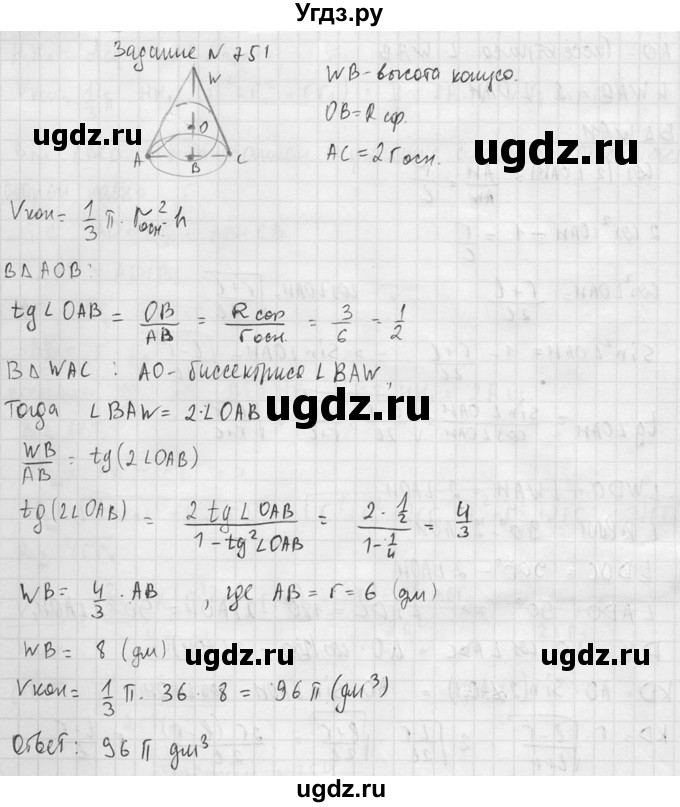 Угдз.ру
Задание N 751
W
O
A
B
C
WB - высота конуса.
OB = R сф.
AC = 2 r осн.
ugdz.ru
ugdz.ru
Vкон = 1/3 π · r²осн · h
В Δ AOB:
tg ∠ OAB = OB/AB = R сф/r осн. = 3/6 = 1/2
В Δ WAC : AO - биссектриса ∠ BAW,
Тогда ∠ BAW = 2 · ∠ OAB
ugdz.ru
WB/AB = tg (2 ∠ OAB)
tg (2 ∠ OAB) = 2 tg ∠ OAB/1 - tg² ∠ OAB = 2 · 1/2/1 - 1/4 = 4/3
ugdz.ru
WB = 4/3 · AB , где AB = r = 6 (дм)
WB = 8 (дм)
ugdz.ru
ugdz.ru
Vкон = 1/3 π · 36 · 8 = 96 π (дм³)
Ответ: 96 π дм³
ugdz.ru
ugdz.ru